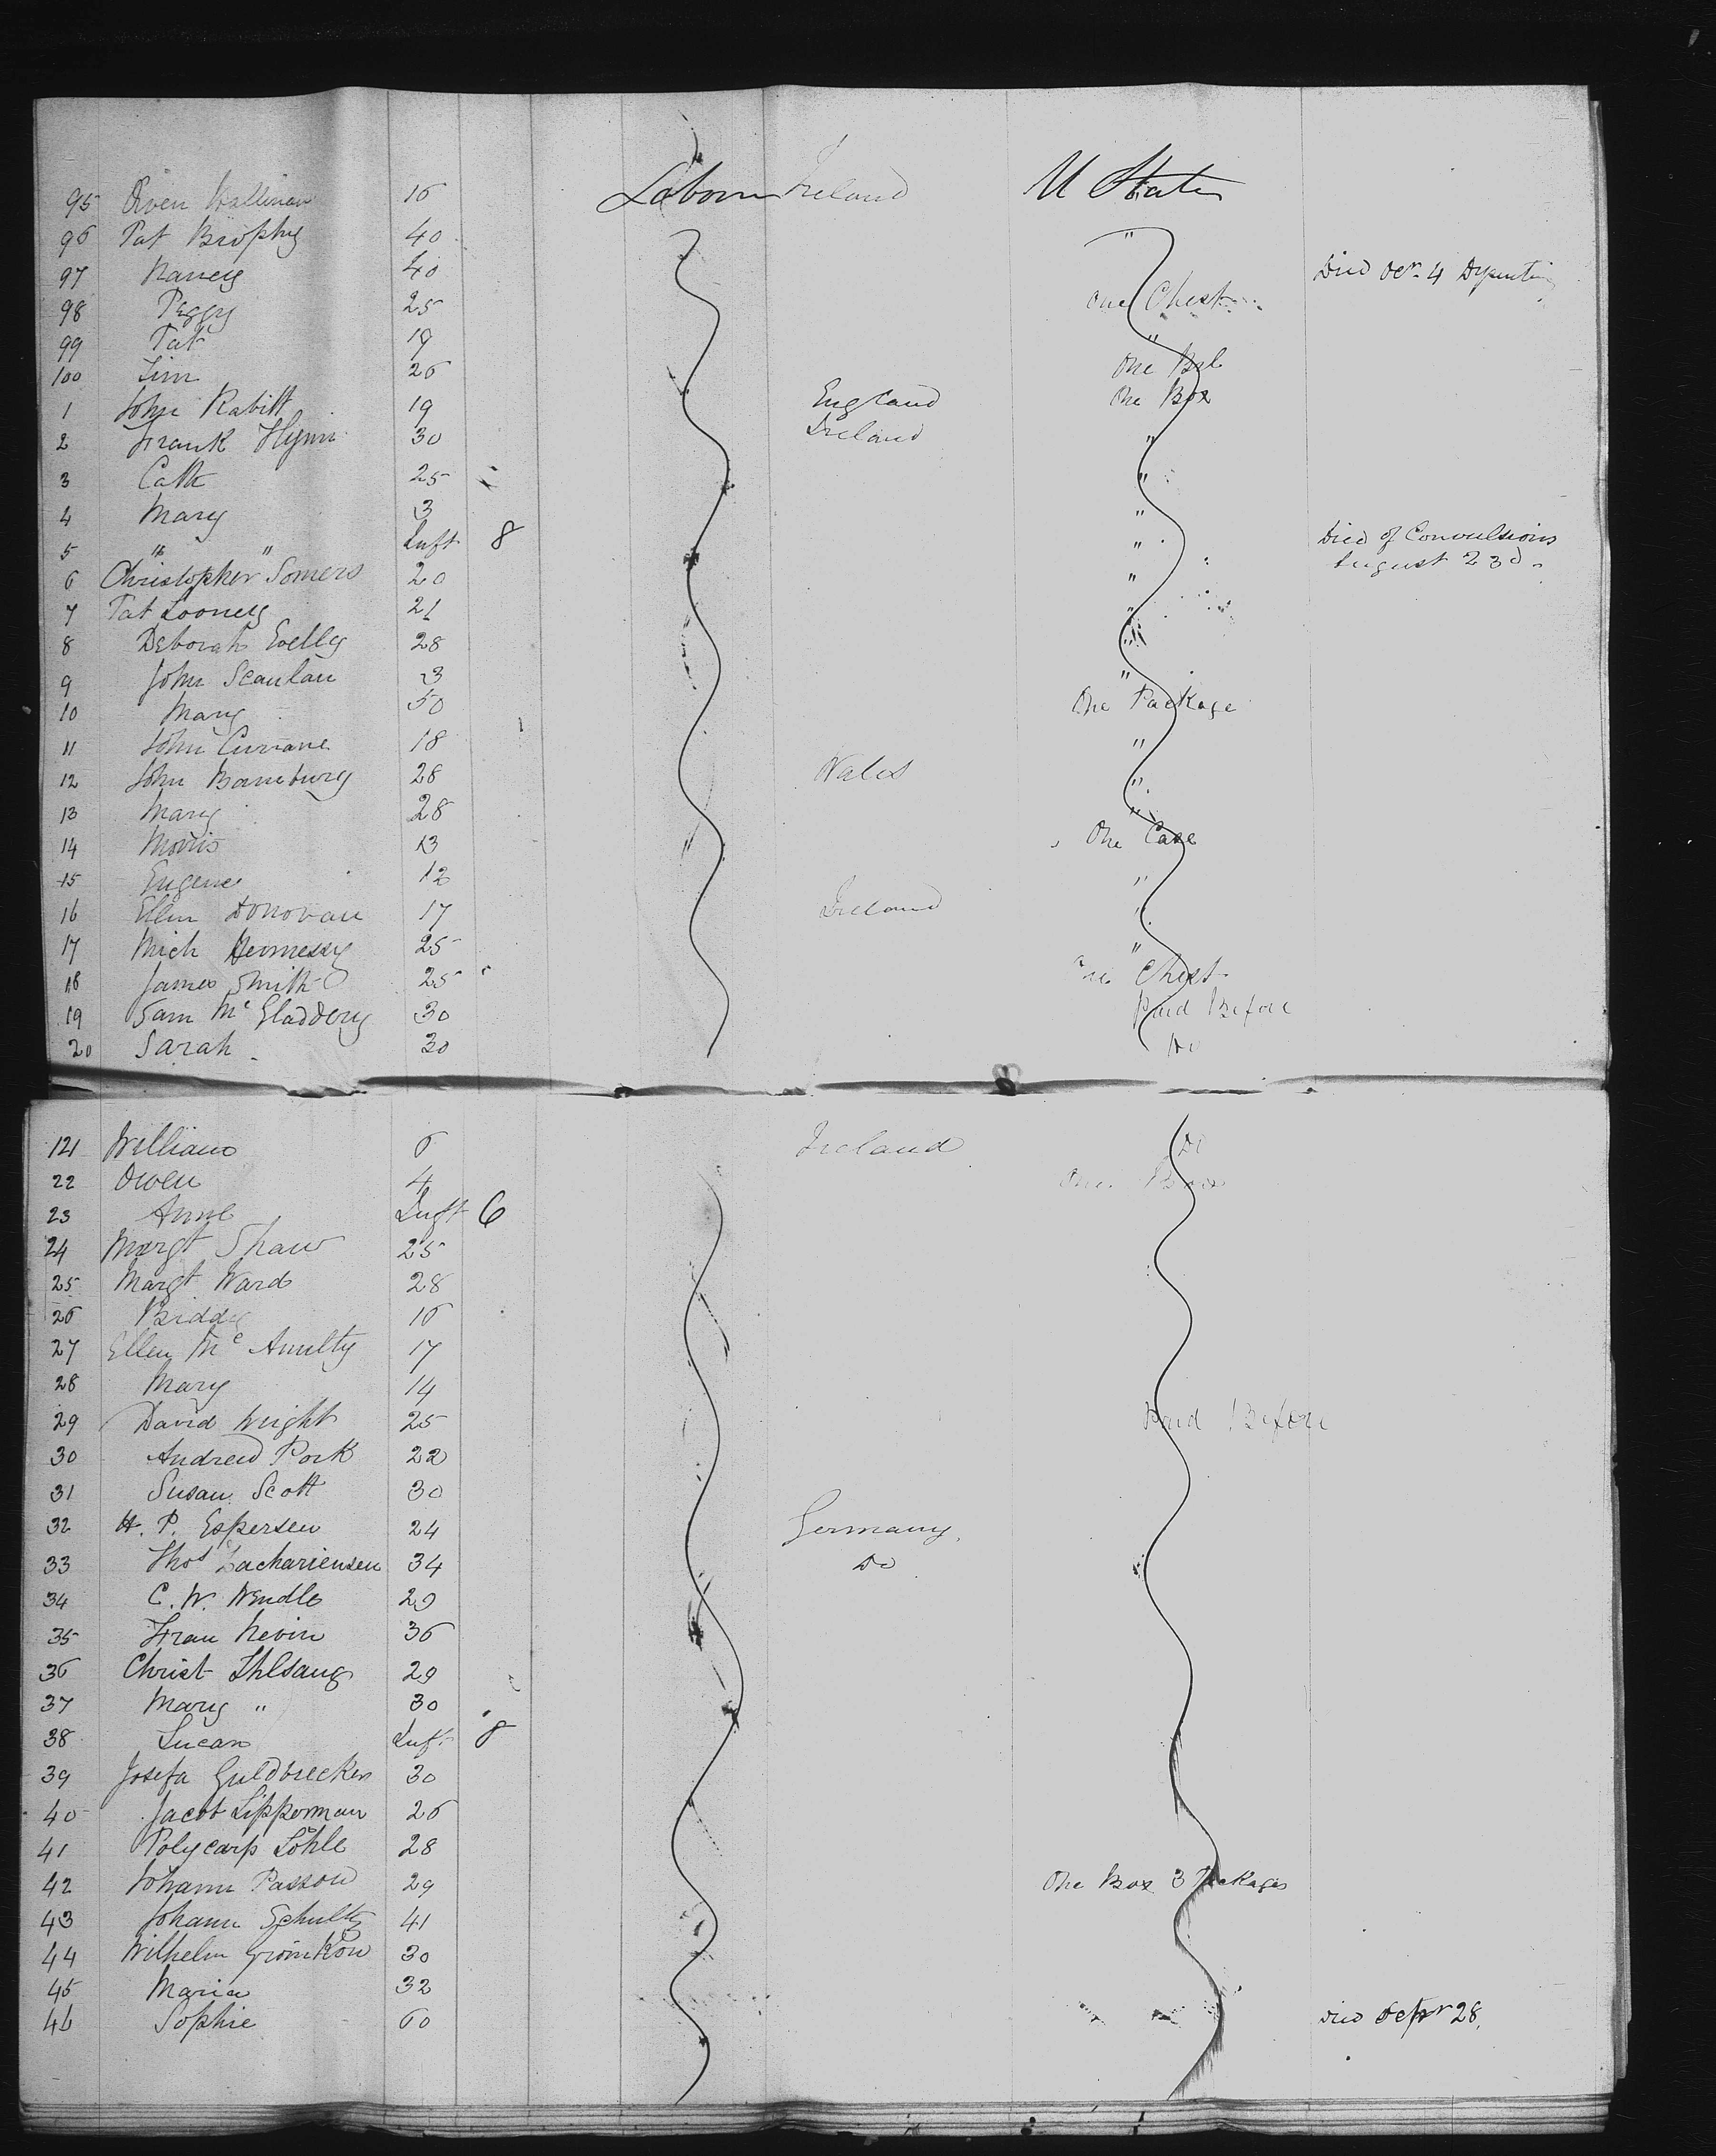 95 Owen Hallinan 16 Labourer Ireland U States
96 Pat Brophy 40 "
97 Nancy 40 Died Oct. 4 Dysentery
98 Peggy 25 One Chest
99 Pat 19 "
100 Jim 26 One Brl
1 John Rabitt 19 England One Box
2 Frank Flynn 30 Ireland "
3 Cath 25 "
4 Mary 3 "
5 " " Inft 8 " Died of Convulsions
August 23d.
6 Christopher Somers 20 "
7 Pat Looney 21 "
8 Deborah 28 "
9 John Scanlan 3 "
10 Mary 50 One Package
11 John Currane 18 "
12 John 28 Wales "
13 Mary 28 "
14 Morris 13 One Case
15 Eugene 12 "
16 Ellen Donovan 17 Ireland "
17 Mich Hennessy 25 "
18 James Smith 25 One Chest
19 Sam McGladdery 30 Paid Before
20 Sarah 30 Do
121 William 6 Ireland Do
22 Owen 4 One Box
23 Anne Inft 6
24 Margt Shaw 25
25 Margt Ward 28
26 Biddy 16
27 Ellen McAnulty 17
28 Mary 14
29 David Wright 25 Paid Before
30 Andrew Pork 22
31 Susan Scott 30
32 H. P. Espersen 24 Germany
33 Thos Zachariensen 34 Do
34 C. W. Wendle 29
35 Fran Nevin 36
36 Christ Ihlsang 29
37 Mary " 30
38 Lucan Inft 8
39 Josefa Guldbrecken 30
40 Jacob Lipperman 26
41 Polycarp Löhle 28
42 Johann Passow 29 One Box 3 Packages
43 Johann Schultz 41
44 Wilhelm Gromkow 30
45 Maria 32
46 Sophie 60 Died Sepr 28.